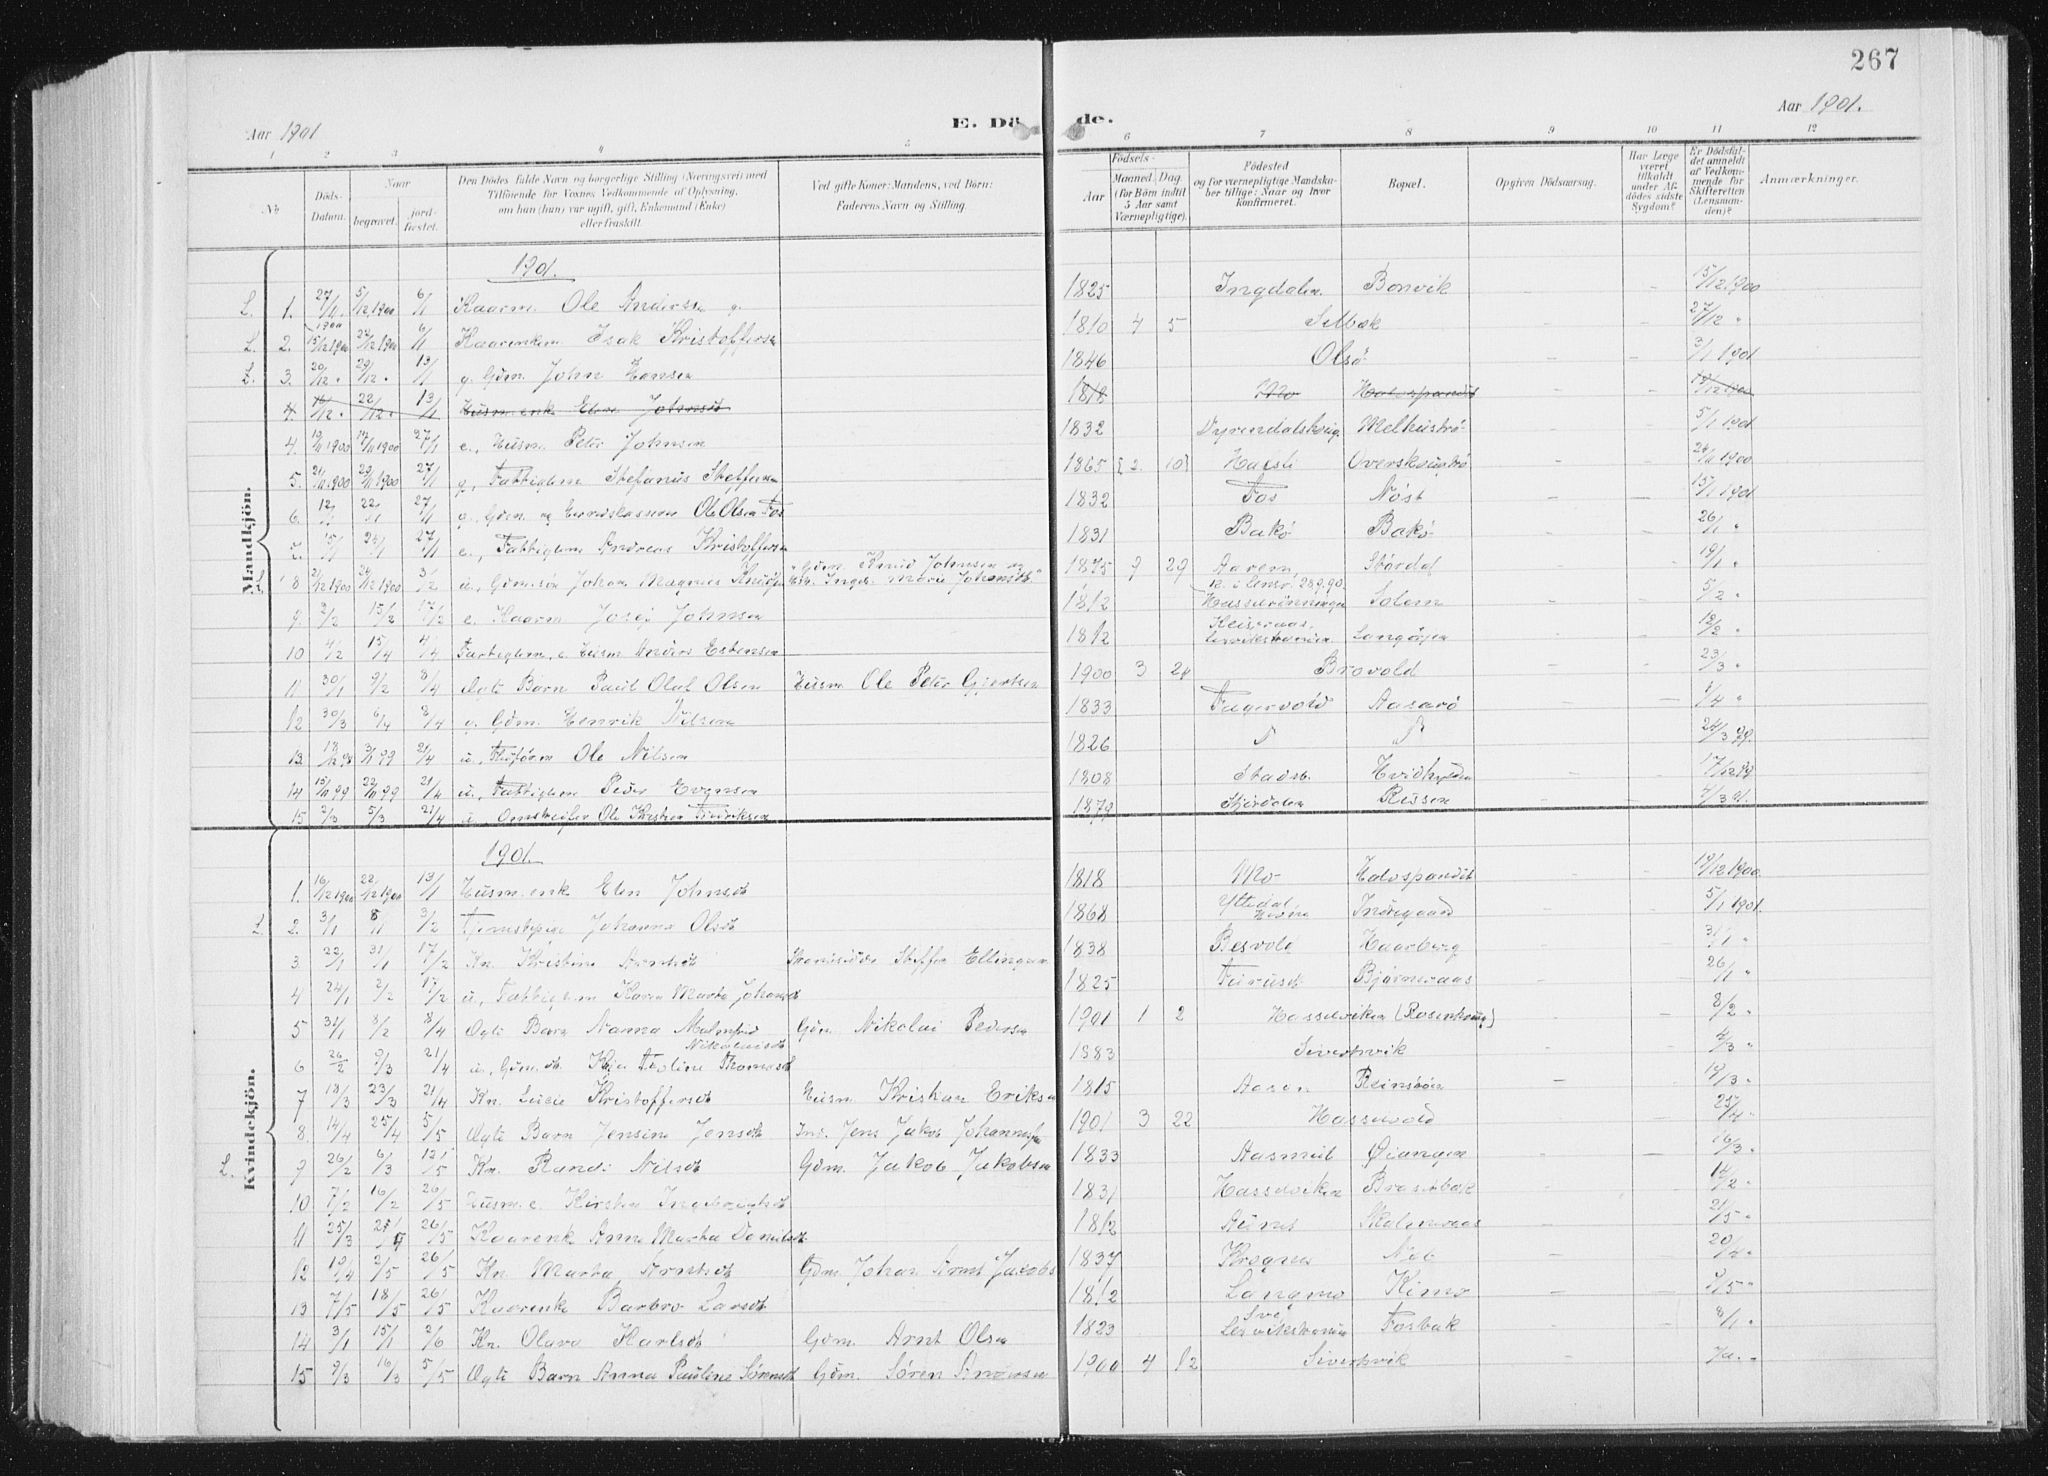 267
Aar 1901
E. Dö de.
Aar 1901.
1 2 3 4 5 6 7 8 9 10 11 12
No
Döds-Datum.
Naar
begravet.
jord-fæstet.
Den Dödes fulde Navn og borgerlige Stilling (Næringsvei) med
Tilföiende for Voxnes Vedkommende af Oplysning,
om han (hun) var ugift, gift, Enkemand (Enke)
eller fraskilt.
Ved gifte Koner: Mandens, ved Börn:
Faderens Navn og Stilling
Födsels-
Aar
Maaned. Dag.
(for Börn indtil
5 Aar samt
Værnepligtige).
Födested
og for værnepligtige Mandska-
ber tillige: Naar og hvor
konfirmeret.
Bopæl.
Opgiven Dödsaarsag.
Har Læge
været
tilkaldt
under Af-
dödes sidste
Sygdom?
Er Dödsfal-
det anmeldt
af Vedkom-
mende for
Skifteretten
(Lensman-
den)?
Anmærkninger.
Mandkjön.
1901.
L. 1. 27/11 1900 5/12 1900 6/1 Kaarm. Ole Andersen g. 1825 Ingdalen Bonvik 15/12 1900
L. 2. 15/12 1900 22/12 1900 6/1 Kaarenkem Isak Kristoffersen 1810 4 5 Selbæk 27/12 "
L. 3. 20/12 " 29/12 " 13/1 g. Gdm. John Hansen 1846 Olsø 3/1 1901
4. 16/12 " 22/12 " 13/1 Husm.enk Elen Johnsdt 1818 Mo 19/12 1900
4. 17/11 1900 27/1 e., Husm. Peter Johnsen 1832 Melhustrø 5/1 1901
5. 21/11 1900 29/11 1900 27/1 g., Fattiglem Stefanus Steffensen 1865 2. 10 24/11 1900
6. 12/1 22/1 27/1 g., Gdm. og Ole Olsen Fos 1832 Fos Nøst 15/1 1901
7. 15/1 26/1 27/1 e., Fattiglem Andreas Kristoffersen 1831 Bakø Bakø 26/1 "
L 8 21/12 1900 29/12 1900 3/2 u., Gdm.søn Johan Magnus Knudsen Gdm. Knud Johnsen og Hst. Ingeb. Marie Johansdt 1875 9 29 Størdal 19/1 "
9. 3/2 15/2 17/2 e. Kaarm Josef Johnsen 1812 Hasselrønningen Solem 5/2 "
10 4/2 15/4 4/4 Fattiglem, e. Husm Anders Estensen 1812 12/2 "
11 30/1 9/2 8/4 Ægte Barn Paul Olaf Olsen Husm Ole Peter Gjertsen 1900 3 24 Brovold 23/3 "
12 30/3 6/4 8/4 g. Gdm. Henrik Nilsen 1833 Fagervold Aasarø 1/4 "
13. 18/12 98 3/1 99 21/4 u., Ole Nilsen 1826 24/3 99.
14 15/11 99 22/11 99 21/4 u., Fattiglem Peder Evensen 1808 Stadsb. 17/12 99
15 2/3 5/3 21/4 u., Ole Kristian Fredriksen 1879 Stjørdalen Rissen 7/3 01.
Kvindekjön.
1901.
1. 16/12 1900 22/12 1900 13/1 Husm.enk Elen Johnsdt 1818 Mo 19/12 1900.
L. 2. 3/1 8/1 3/2 Johanna Olsdt 1868 5/1 1901.
3. 22/1 31/1 17/2 Kn. Kristine Arntsdt Steffen Ellingsen 1838 Resvold Haarberg 31/1 "
4 24/1 2/2 17/2 u., Fattiglem Karen Marta Johansdt 1825 Bjørneraas 26/1 "
5 31/1 8/2 8/4 Ægte Barn Nanna Malmfrid Nikolaisdt Gdm. Nikolai Pedersen 1901 1 2 Hasselviken (Rosenhaug) 8/2 "
6 26/2 9/3 21/4 u., Gdm.dt. Thomasdt 1883 Sivertsvik 4/3 "
7 18/3 23/3 21/4 Kn. Lucie Kristoffersdt Husm Kristian Eriksen 1815 Reinsbøen 19/3 "
8. 14/4 25/4 5/5 Ægte Barn Jensine Jensdt Ind. Jens Jakob Johannessen 1901 3 22 Hasselvold 25/4 "
L. 9 26/2 6/3 12/5 Kn. Randi Nilsdt Gdm. Jakob Jakobsen 1833 Aasmul Øiangen 16/3 "
10 7/2 16/2 26/5 Husm.e. Kirsten Ingebrigtsdt 1831 Hasselviken 14/2 "
11 25/3 26/5 Kaarenk Anne Marta Danielsdt 1812 Aunet 21/5 "
12 19/4 2/5 26/5 Kn. Marta Arntsdt Gdm. Johan Arnt Jakobs 1837 Krognes 20/4 "
13 7/5 18/5 26/5 Kaarenke Barbro Larsdt 1812 Langmo Kimo /5 "
14 3/1 15/1 2/6 Kn. Olava Karlsdt Gdm. Arnt Olsen 1823 Fosbak 8/1 "
15 9/3 16/3 5/5 Ægte Barn Anna Pauline Sørensdt Gdm. Søren Andersen 1900 4 12 Sivertsvik Ja. "